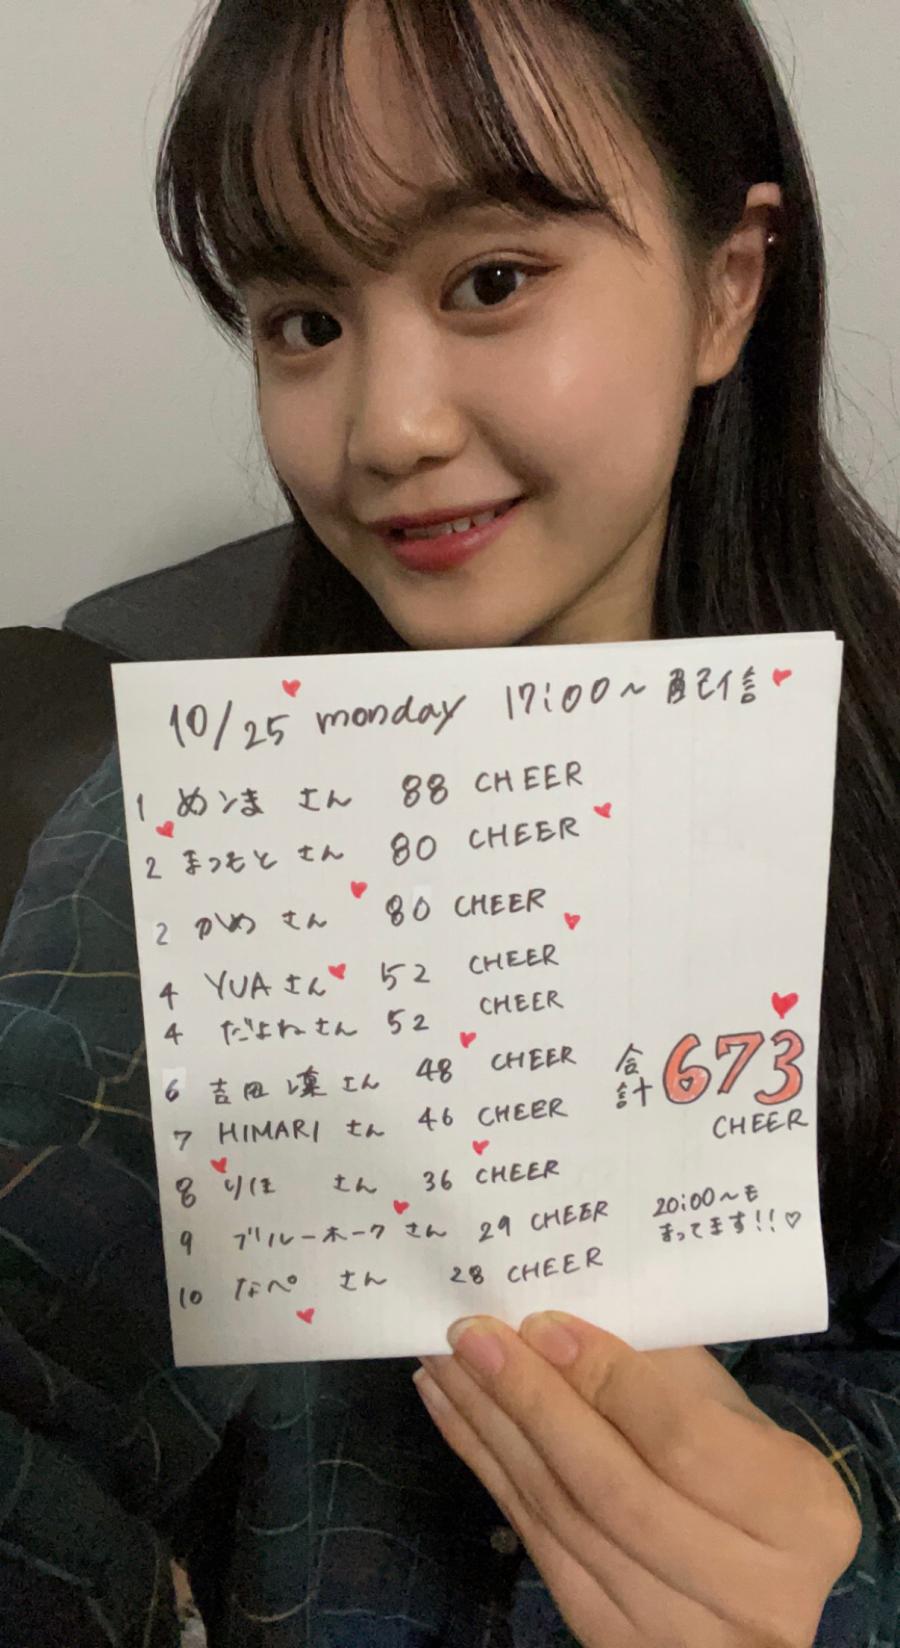 10/25 monday 17:00～配信
1 めんま さん 88 CHEER
2 まつもと さん 80 CHEER
2 かめ さん 80 CHEER
4 YUA さん 52 CHEER
4 だよねさん 52 CHEER
6 吉田 凜 さん 48 CHEER
7 HIMARI さん 46 CHEER
8 りほ さん 36 CHEER
9 ブルーホーク さん 29 CHEER
10 なぺ さん 28 CHEER
合計 673
CHEER
20:00～も
まってます!!♡